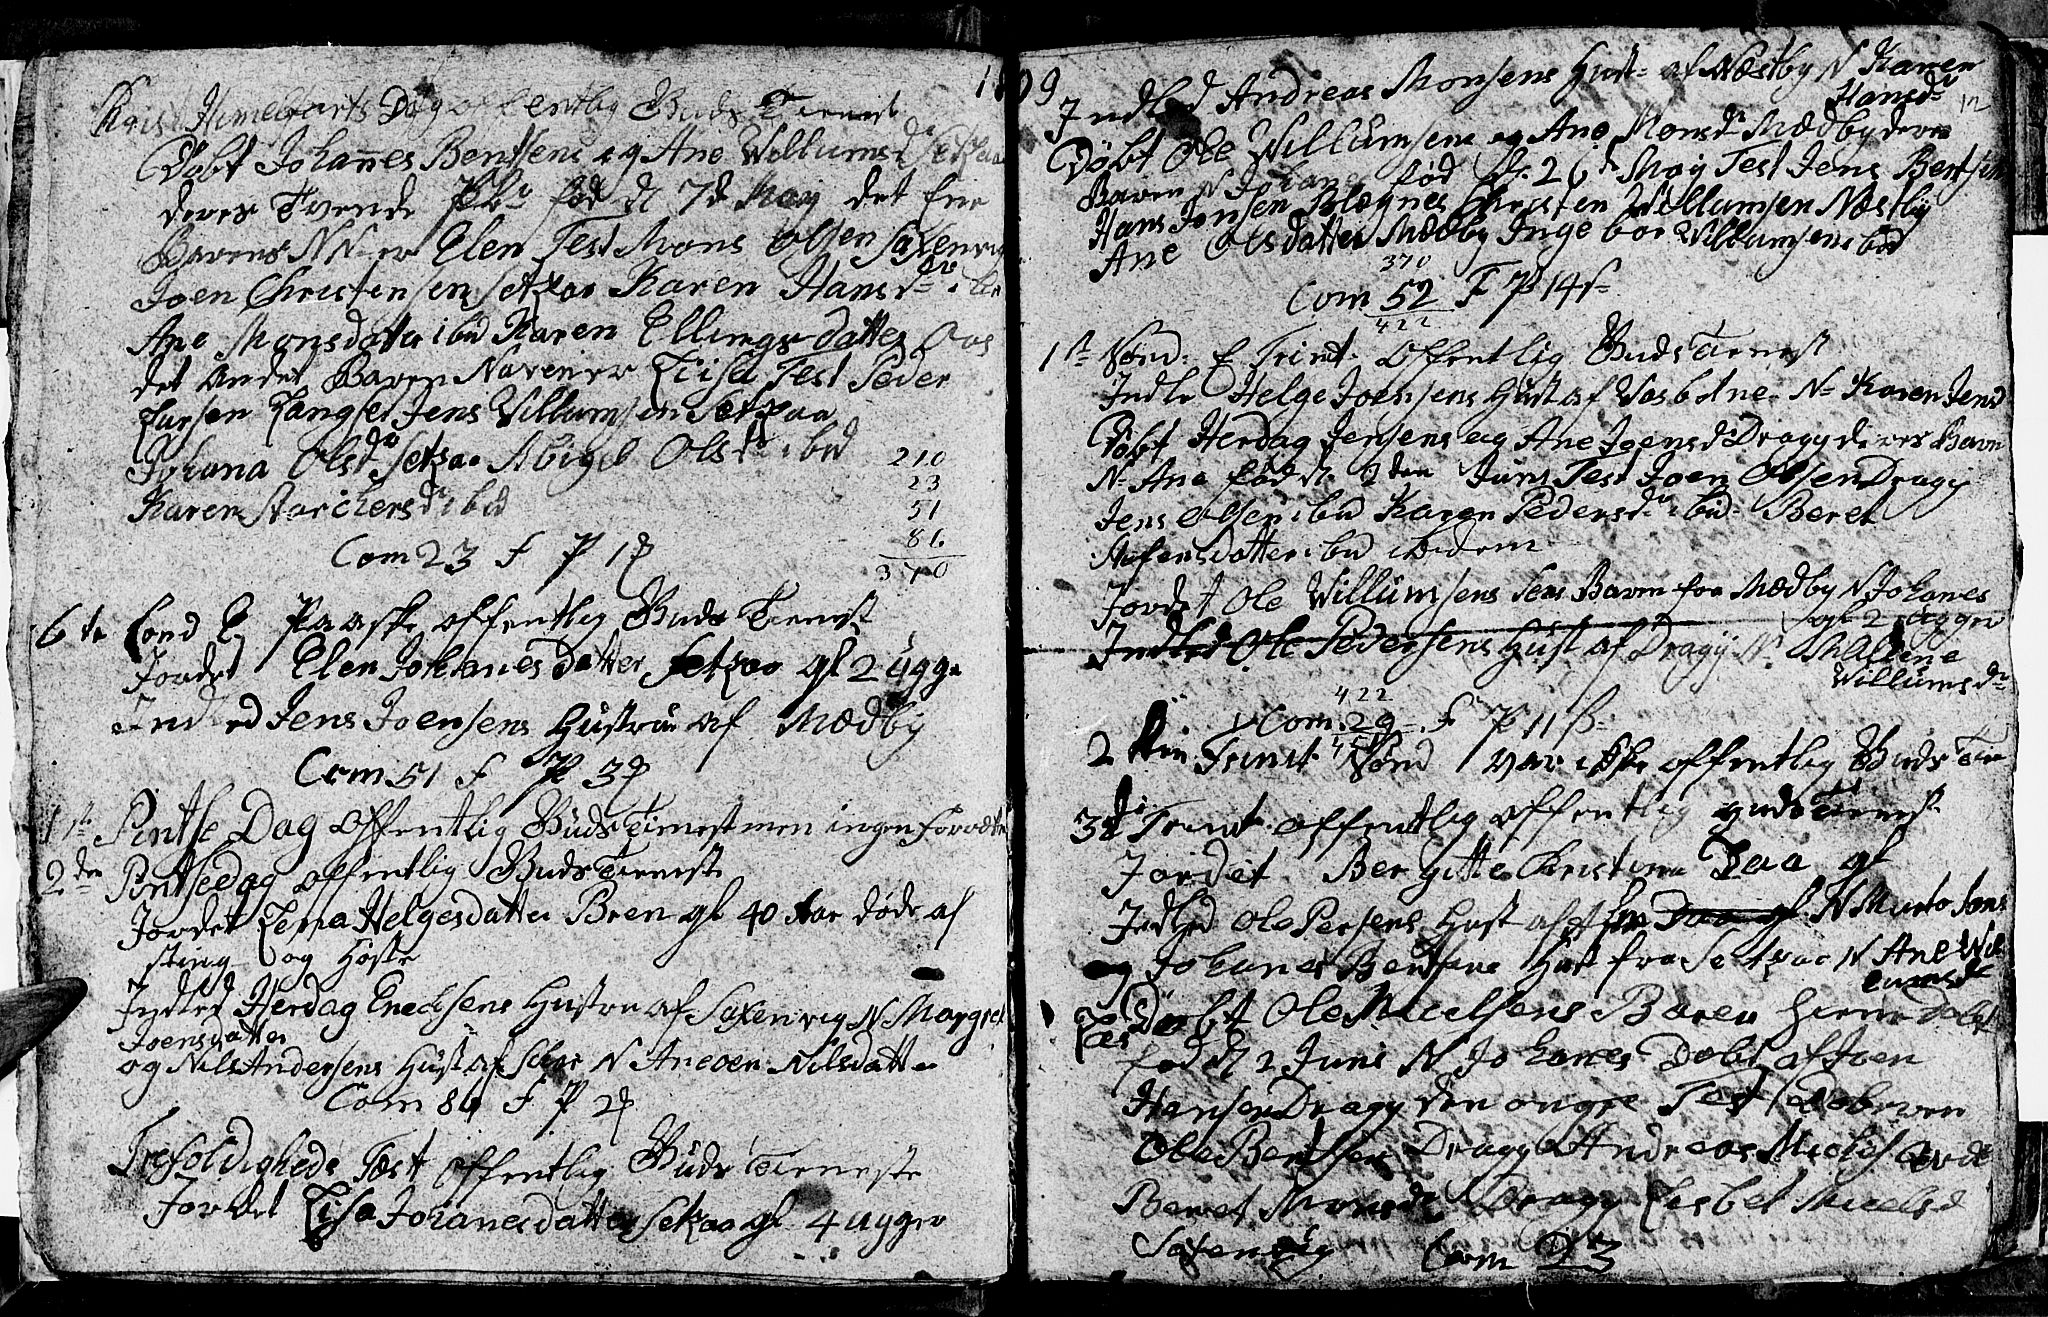 1809
Christi Himelfarts Dag offentlig Guds Tienest
Døbt Johannes Bentsens og Ane Willumsdr Setsaa
deres Tvende fød d 7d May det Ene
Barens N er Elen Test Mons Olsen Saxenvig
Joen Christensen Setsaa Karen Hansdr ibd
Ane Monsdatter ibd Karen Ellingsdatter
det andet Baren Navn er Lisa Test Peder
Larsen Langset Jens Willumsen Setsaa
Johana Olsdr Setsaa Abigel Olsdr ibd
Karen ibd
210
23
51
86
370
Com 23 F P 1
6te Sond E Paaske offentlig Guds Tienest
Jordet Elen Johanesdatter Setsaa gl 2 ugger
Indled Jens Joensens Hustru af Mædby
Com 51 F P 3
1ste Pintse Dag offentlig Guds Tienest men ingen forretn
2den Pintsedag offentlig Guds Tieneste
Jordet Lena Helgesdatter Bren gl 40 Aar døde af
sting og Hoste
Indled Herdag Enochsens Hustru af Saxenvig N Margret
Joensdatter
og Nils Andersens Hust af N Aneoen Nilsdatter
Com 86 F P 2
Trefoldigheds Fæst offentlig Guds Tieneste
Jordet Lisa Johanesdatter Setsaa gl 4 ugger
Indled Andreas Monsens Hust af Næstby N Karen
Hansdr
12
Døbt Ole Willumsens og Ane Monsdr Mædby deres
Baren N Johanes fød d. 26de May Test Jens Bentsen
Hans Jonsen Christen Willumsen Næstby
Ane Olsdatter Mædby Ingebor Willumsens ibd
370
Com 52 F P 14
422
1ste Sønd: E Trint. offentlig Guds Tienest
Indle Helge Joensens Hust af Vasbotne N Karen Jensd
Døbt Herdag Jensens og Ane Joensdr Dragy deres Baren
N Ane fød d. 2den Juni Test Joen Olsen Dragy
Jens Olsen ibd Karen Pedersdr ibd Beret
datter ibd ibidem
Jordet Ole Willumsens Baren fra Mædby N Johanes
gl 2 ugger
Indled Ole Pedersens Hust af Dragy N. Malene
Willumsdr
422
Com 29 F P 11
2den Trint Sønd var ikke offentlig Guds Tien
3di Trint. offentlig offentlig guds Tienest
Jordet Bergitte Kristina Daa gl
Indled Ole Persens Hust af N
og Johanes Bentsens Hust fra Setsaa N Ane Wil
lumsdr
Døbt Ole Mielsens Baren Hieme døbt
fød d 2 Juni N Johanes Døbt af Joen
Hansen Dragy den ongre Test
Ole Bentsen Dragy Andreas
Beret Monsdr Dragy Lisbet Mielsd
Saxenvig Com 23